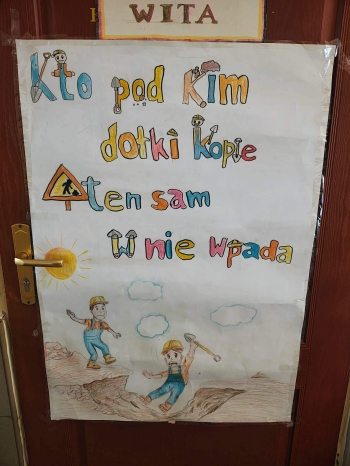 WITA
Kto pod kim
dołki kopie
ten sam
w nie wpada